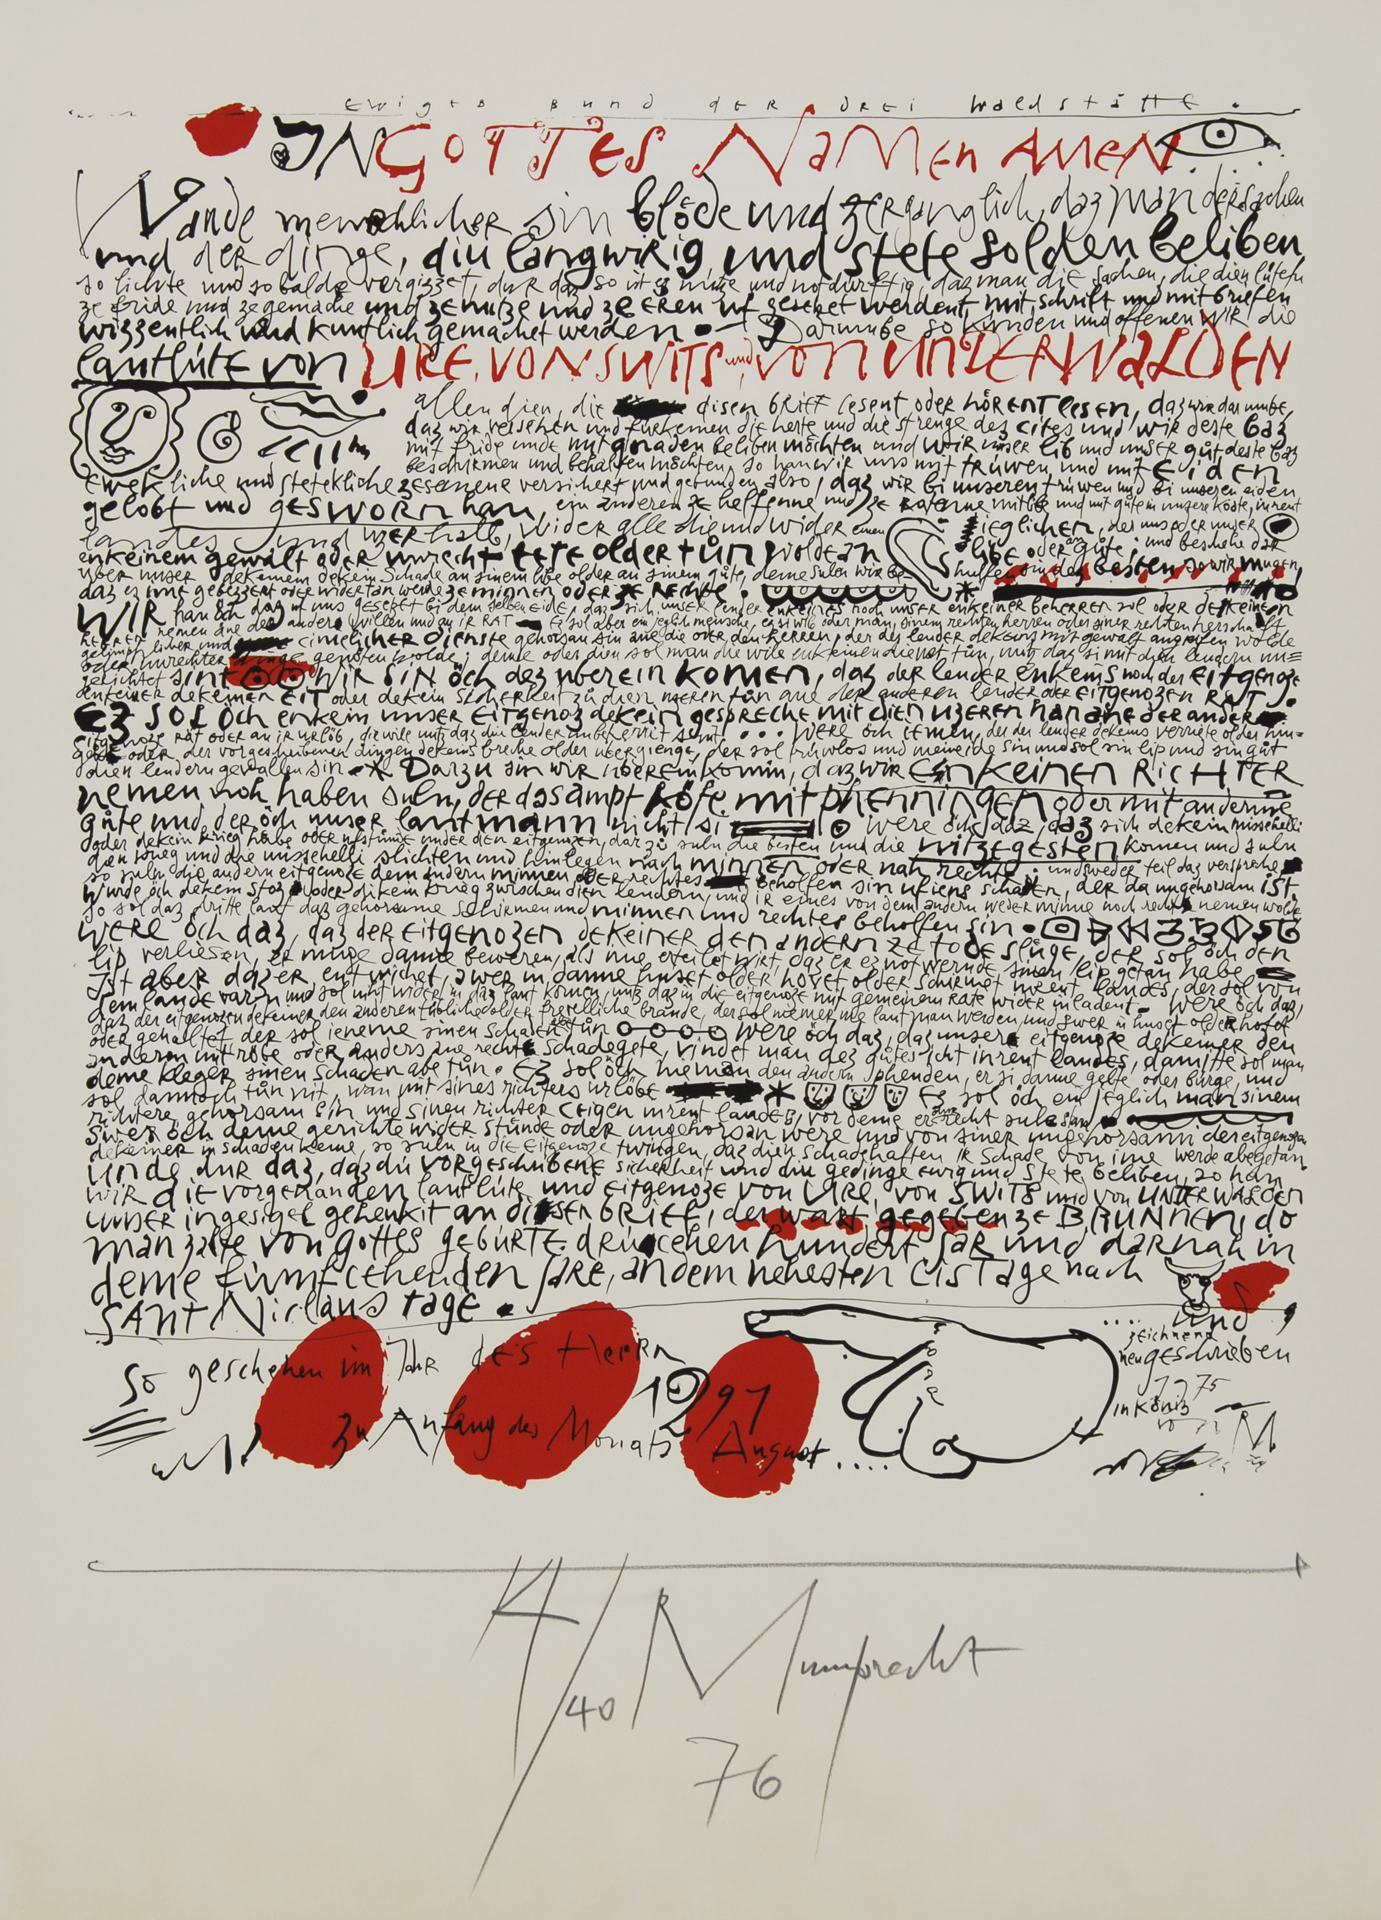 Ewiger Bund der drei Waldstätte.
IN GOTTES NAMEN AMEN
Wande menschlicher sin blöde und zerganglich, daz man der sachen
und der dinge, diu langwirig und stete solden beliben
so lichte und so balde vergizzet, dur daz so ist es nütze und notdurftig, daz man die sachen, die dien lüten
ze fride und ze gemache und ze nutze und ze eren uf gesetzet werdent, mit schrift und mit briefen
wizzentlich und kuntlich gemachet werden. Darumbe so künden und offenen wir die
lantlüte von URE, VON SWITS und VON UNDERWALDEN
allen dien, die disen brief lesent oder hörent lesen, daz wir dar umbe,
daz wir versehen und fürkemen die herte und die strenge des cites und wir deste baz
mit fride unde mit gnaden beliben möchten und wir unser lib und unser güt deste baz
beschirmen und behalten möchten, so han wir uns mit trüwen und mit Eiden
ewekliche und stetekliche zesemene versichert und gebunden also, daz wir bi unseren trüwen und bi unseren eiden
gelobt und gesworn han, ein anderen ze helfenne und ze ratenne mit libe und mit güte in unsere köste, inrent
landes und uzerhalb, wider alle die und wider einen ieglichen, der uns oder unser
enkeinem gewalt oder unrecht tete older tün wolde an libe oder an güte; und beschehe dar
über unser dekeinem dekein schade an sinem libe older an sinem güte, deme suln wir be-hulfen sin des besten so wir mugen,
daz es ime gebezzert oder widertan werde ze minnen oder ze rechte.
WIR han öch daz uf uns gesetzet bi dem selben eide, daz sich unser lender enkeines noch unser enkeiner beherren sol oder dekeinen
herren nemen ane der andere willen und an ir RAT Es sol aber ein jeglich mensche, es si wib oder man, sinem rechten herren oder siner rechten herschaft
gelimphlicher und cimelicher dienste gehorsan sin ane die oder den herren, der der lender dekeins mit gewalt angrifen wolde
oder unrechter dinge genöten wolde; deme oder dien sol man die wile enkeinen dienst tün, untz daz si mit dien lendern un=
gerichtet sint WIR SIN öch des uberein komen, daz der lender enkeins noch der EITgenoze
enkeiner dekeinen EIT oder dekein sicherheit zü dien uzeren tün ane der anderen lender oder EITGENOZEN RAT.
EZ SOL öch enkein unser EITgenoz dekein gespreche mit dien uzeren han ane der anderr
eitgenoze rat oder an ir urlöb, die wile untz daz diu lender unbeherrit sint ... were öch iemen, der der lender dekeins verriete older hin=
gebe oder der vorgeschribenen dingen dekeins breche older übergienge, der sol truwlos und meineide sin und sol sin lip und sin güt
dien lendern gevallen sin. Darzu sin wir überein komin, daz wir ENKEINEN RICHTER
nemen noch haben suln, der das ampt köfe mit phenningen oder mit anderme
güte und der öch unser lantmann nicht si were öch daz, daz sich dekein missehelli
oder dekein krieg hübe oder ufstünde under den eitgenozen, darzü suln die besten und die witzegesten komen und suln
den krieg und die missehelli slichten und hinlegen nach minnen oder nah rechte: und sweder teil daz versprechi
so suln die andern eitgenoze dem andern minnen oder rechtes beholfen sin uf iens schaden, der da ungehorsam ist
Wurde öch dekein stoz oder dikein krieg zwischen dien lendern, und ir eines von dem andern weder minne noch recht nemen wolde
so sol daz dritte lant daz gehorsame schirmen und minnen und rechtes beholfen sin.
were öch daz, daz der EITgenozen dekeiner den andern ze tode slüge, der sol öch den
lip verliesen, er muge danne beweren, als ime erteilet wirt, daz er ez notwernde sinen lip getan habe
ist aber daz er entwichet, swer in danne huset older hovet older schirmet inrent landes, der sol von
dem lande varn und sol niht wider in daz lant komen, untz daz in die eitgenoze mit gemeinem rate wider inladent. Were öch daz,
daz der eitgenozen dekeiner den anderen tubliche older frefelliche brande, der sol niemer me lantman werden, und swer in huset older hofet
oder gehaltet der sol ieneme sinen schaden abe tün were öch daz, daz unsere eitgenoze dekeiner den
anderen mit robe oder anders ane recht schadegete, vindet man des gütes icht inrent landes, damitte sol man
deme kleger sinen schaden abe tün. Ez sol öch nieman den andern phenden, er si danne gelte oder bürge, und
sol dannoch tün nit, wan mit sines richters urlöbe Es sol öch ein jeglich man sinem
richtere gehorsam sin und sinen richter ceigen inrent landes, vor deme er danne recht sule
Swer öch deme gerichte wider stünde oder ungehorsan were und von siner ungehorsami der eitgenozen
dekeiner in schaden keme, so suln in die eitgenoze twingen, daz dien schadehaften ir schade von ime werde abegetan
unde dur daz, daz dü vorgeschribene sicherheit und diu gedinge ewig und stete beliben, so han
wir die vorgenanden lantlüte und eitgenoze von URE, von SWITS und von UNDERWALDEN
unser ingesigel gehenkit an diesen BRIEF, der wart gegeben ze BRUNNEN, do
man zalte von Gottes GEBURTE drücehen hundert jar und darnah in
deme fümfcehenden jare, an dem nehesten cistage nach
SANT Niclaus tage.
So geschehen im Jahr des Herrn
1291
zu Anfang des Monats August....
.... und
zeichnend
neu geschrieben
1975
in Köniz
M
4/40 R Mumprecht
76